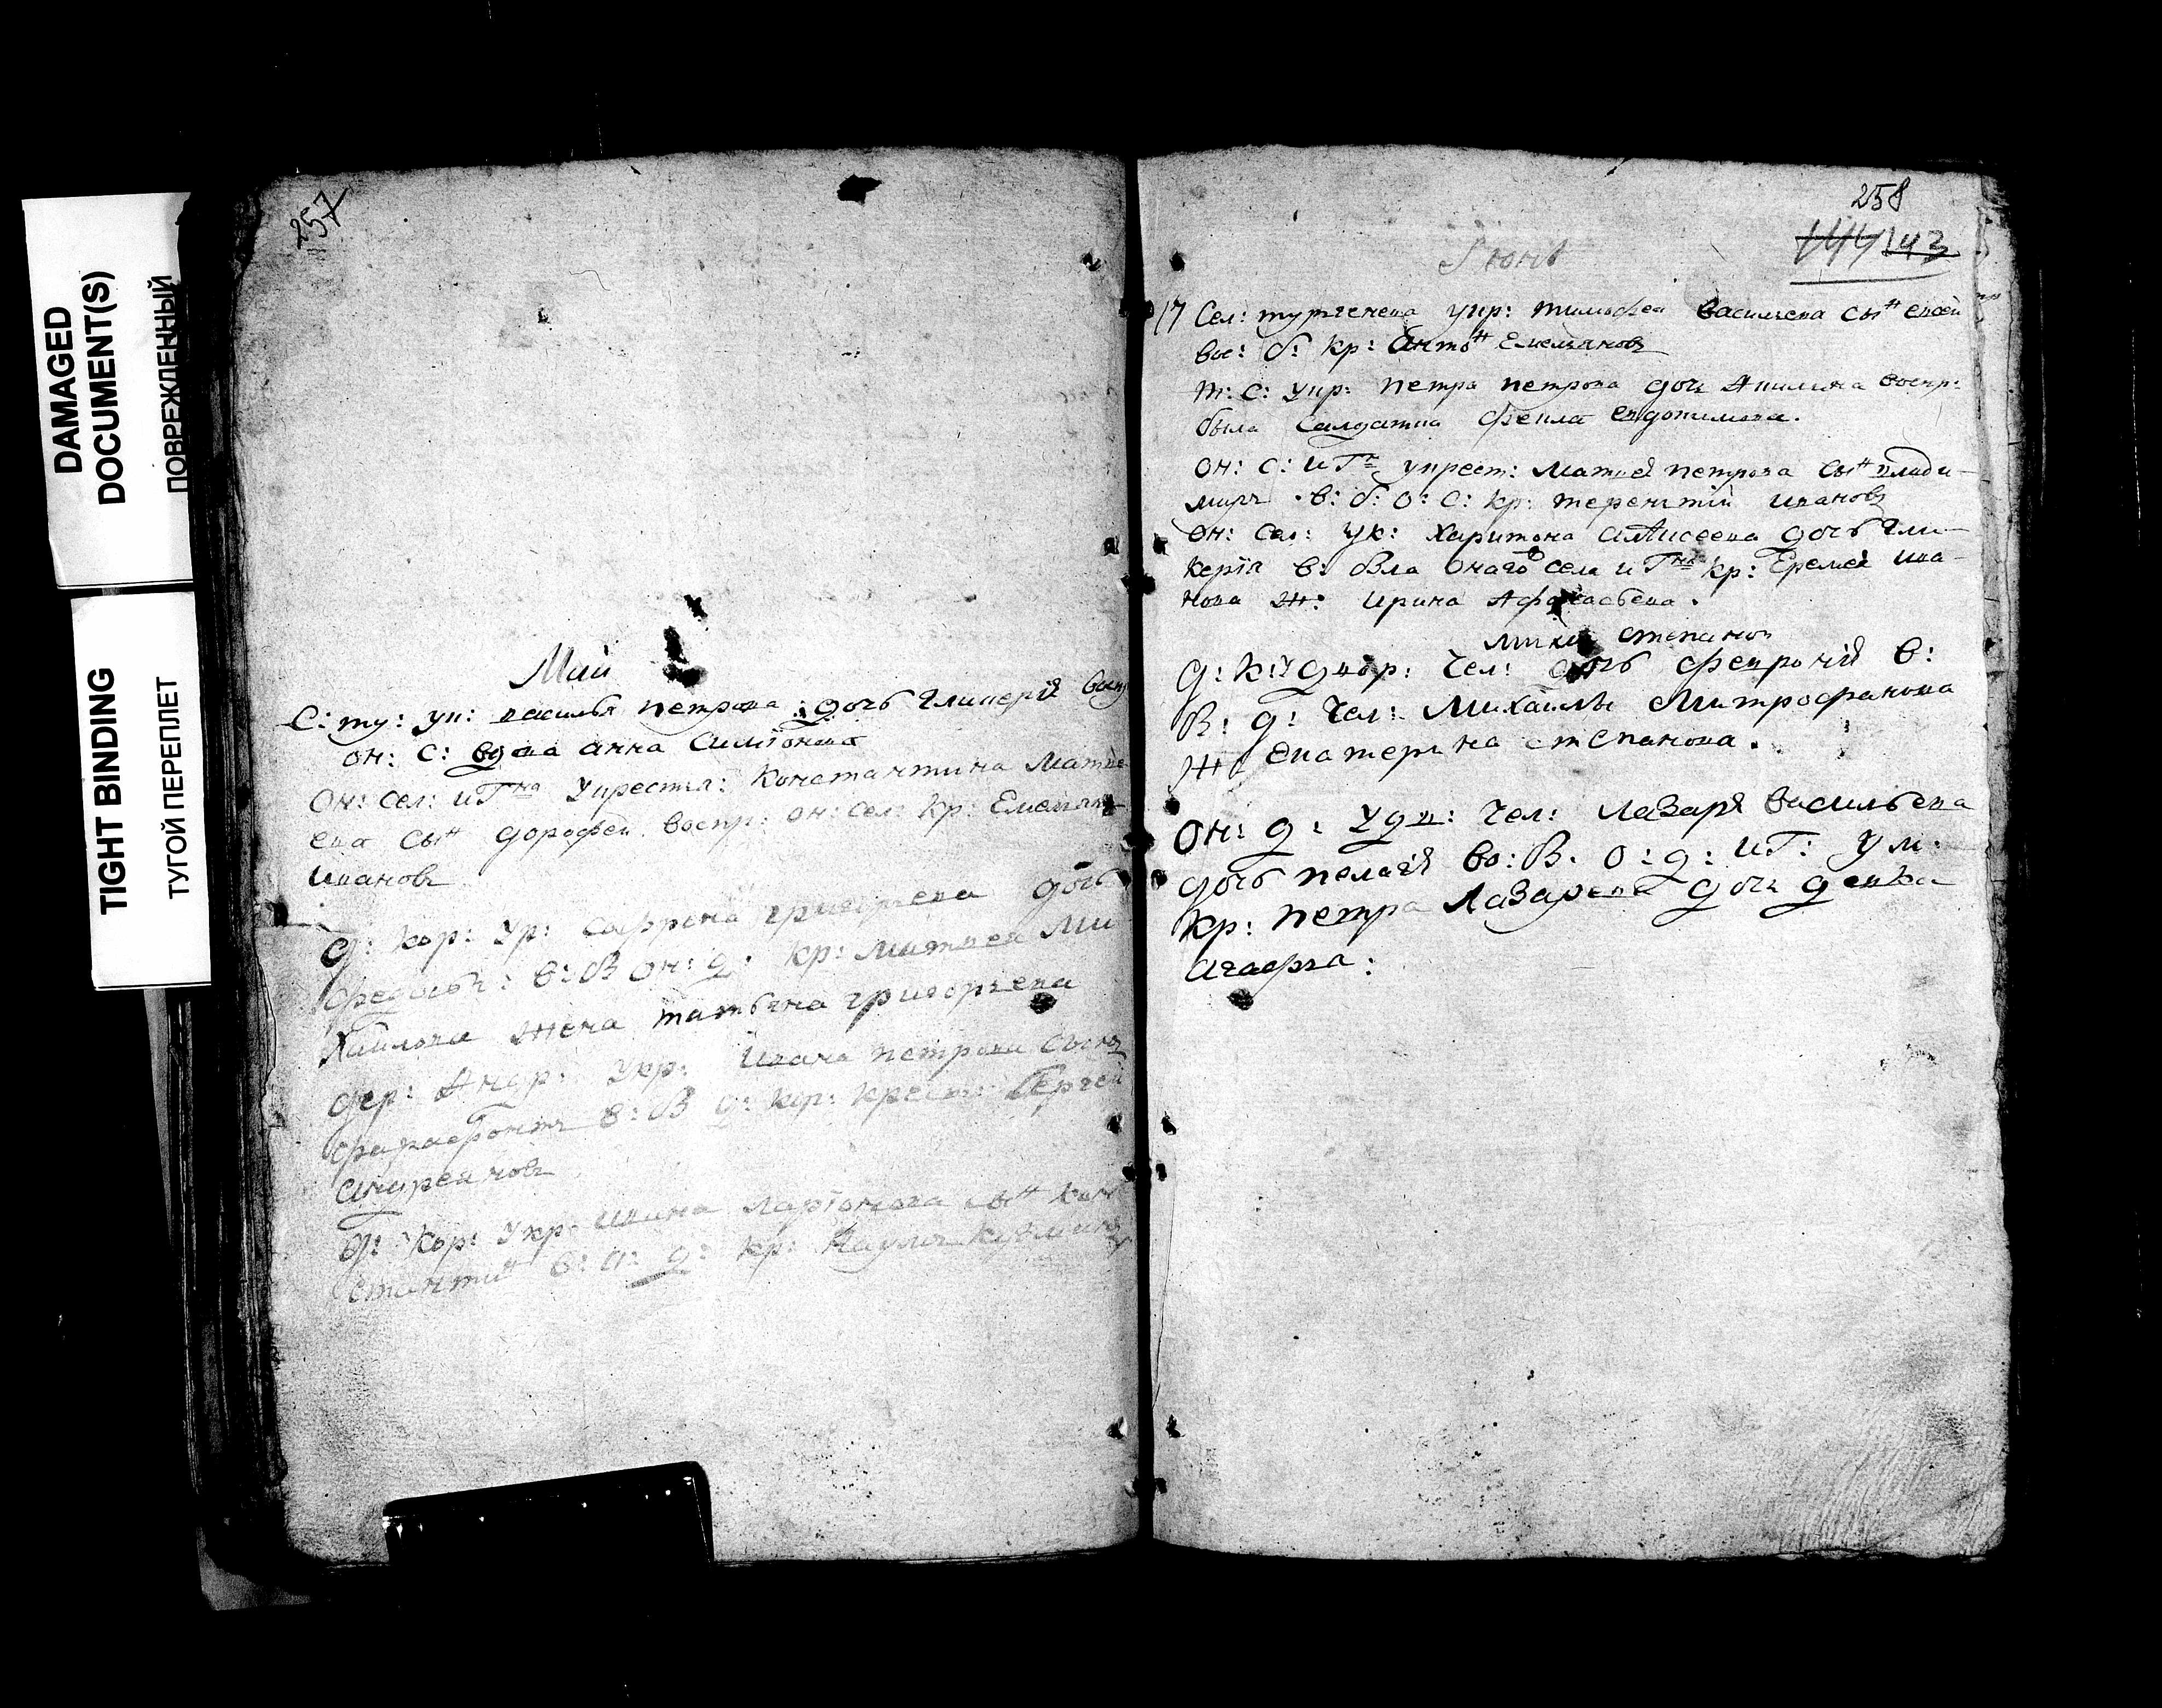 DAMAGED
DOCUMENT(S)
ПОВРЕЖДЕННЫЙ
TIGHT BINDING
ТУГОЙ ПЕРЕПЛЕТ
257
Маи
С: ту: ук: василья петрова дочь гликерiя
он: с: вдова анна симiонова
Он: сел: и Гна укрестья: Константина Матве
ева сын дорофеи воспр: он: сел: кр: Емельян
ивановъ
д: кор: ур: григорьева дочь
в: В он: д: кр: матвея Ми
хаилова жена татьяна григорьева
дер: Андр: укр: ивана петрова сынъ
в: В д: кор: крест: Сергеи
андреяновъ
д: кор: укр: ларiонова сын кон
стантин в: о: д: кр: Наумъ
258
143
Iюнь
17 Сел: тургенева укр: тимофея васильева сын евсеи
вос: б: кр: Антон Емельяновъ
т: с: укр: петра петрова дочь Акилина воспр:
была салдатка фекла евдокимова.
он: с: и Гн укрест: матвея петрова сын влади-
миръ в: б: о: с: кр: терентiи ивановъ
он: сел: ук: харитона алексеева дочь гли-
керiя в: Вла онаго села и Гна кр: Еремея ива-
нова ж: ирина Афанасьева.
степанов
д: к: у двор: чел: дочь в:
В: д: чел: Михаилы Митрофанова
ж: екатерина степанова.
Он: д: у дв: чел: лазаря васильева
дочь пелагiя во: В. о: д: и Г: ум:
кр: петра лазарева дочь девка
агафья: